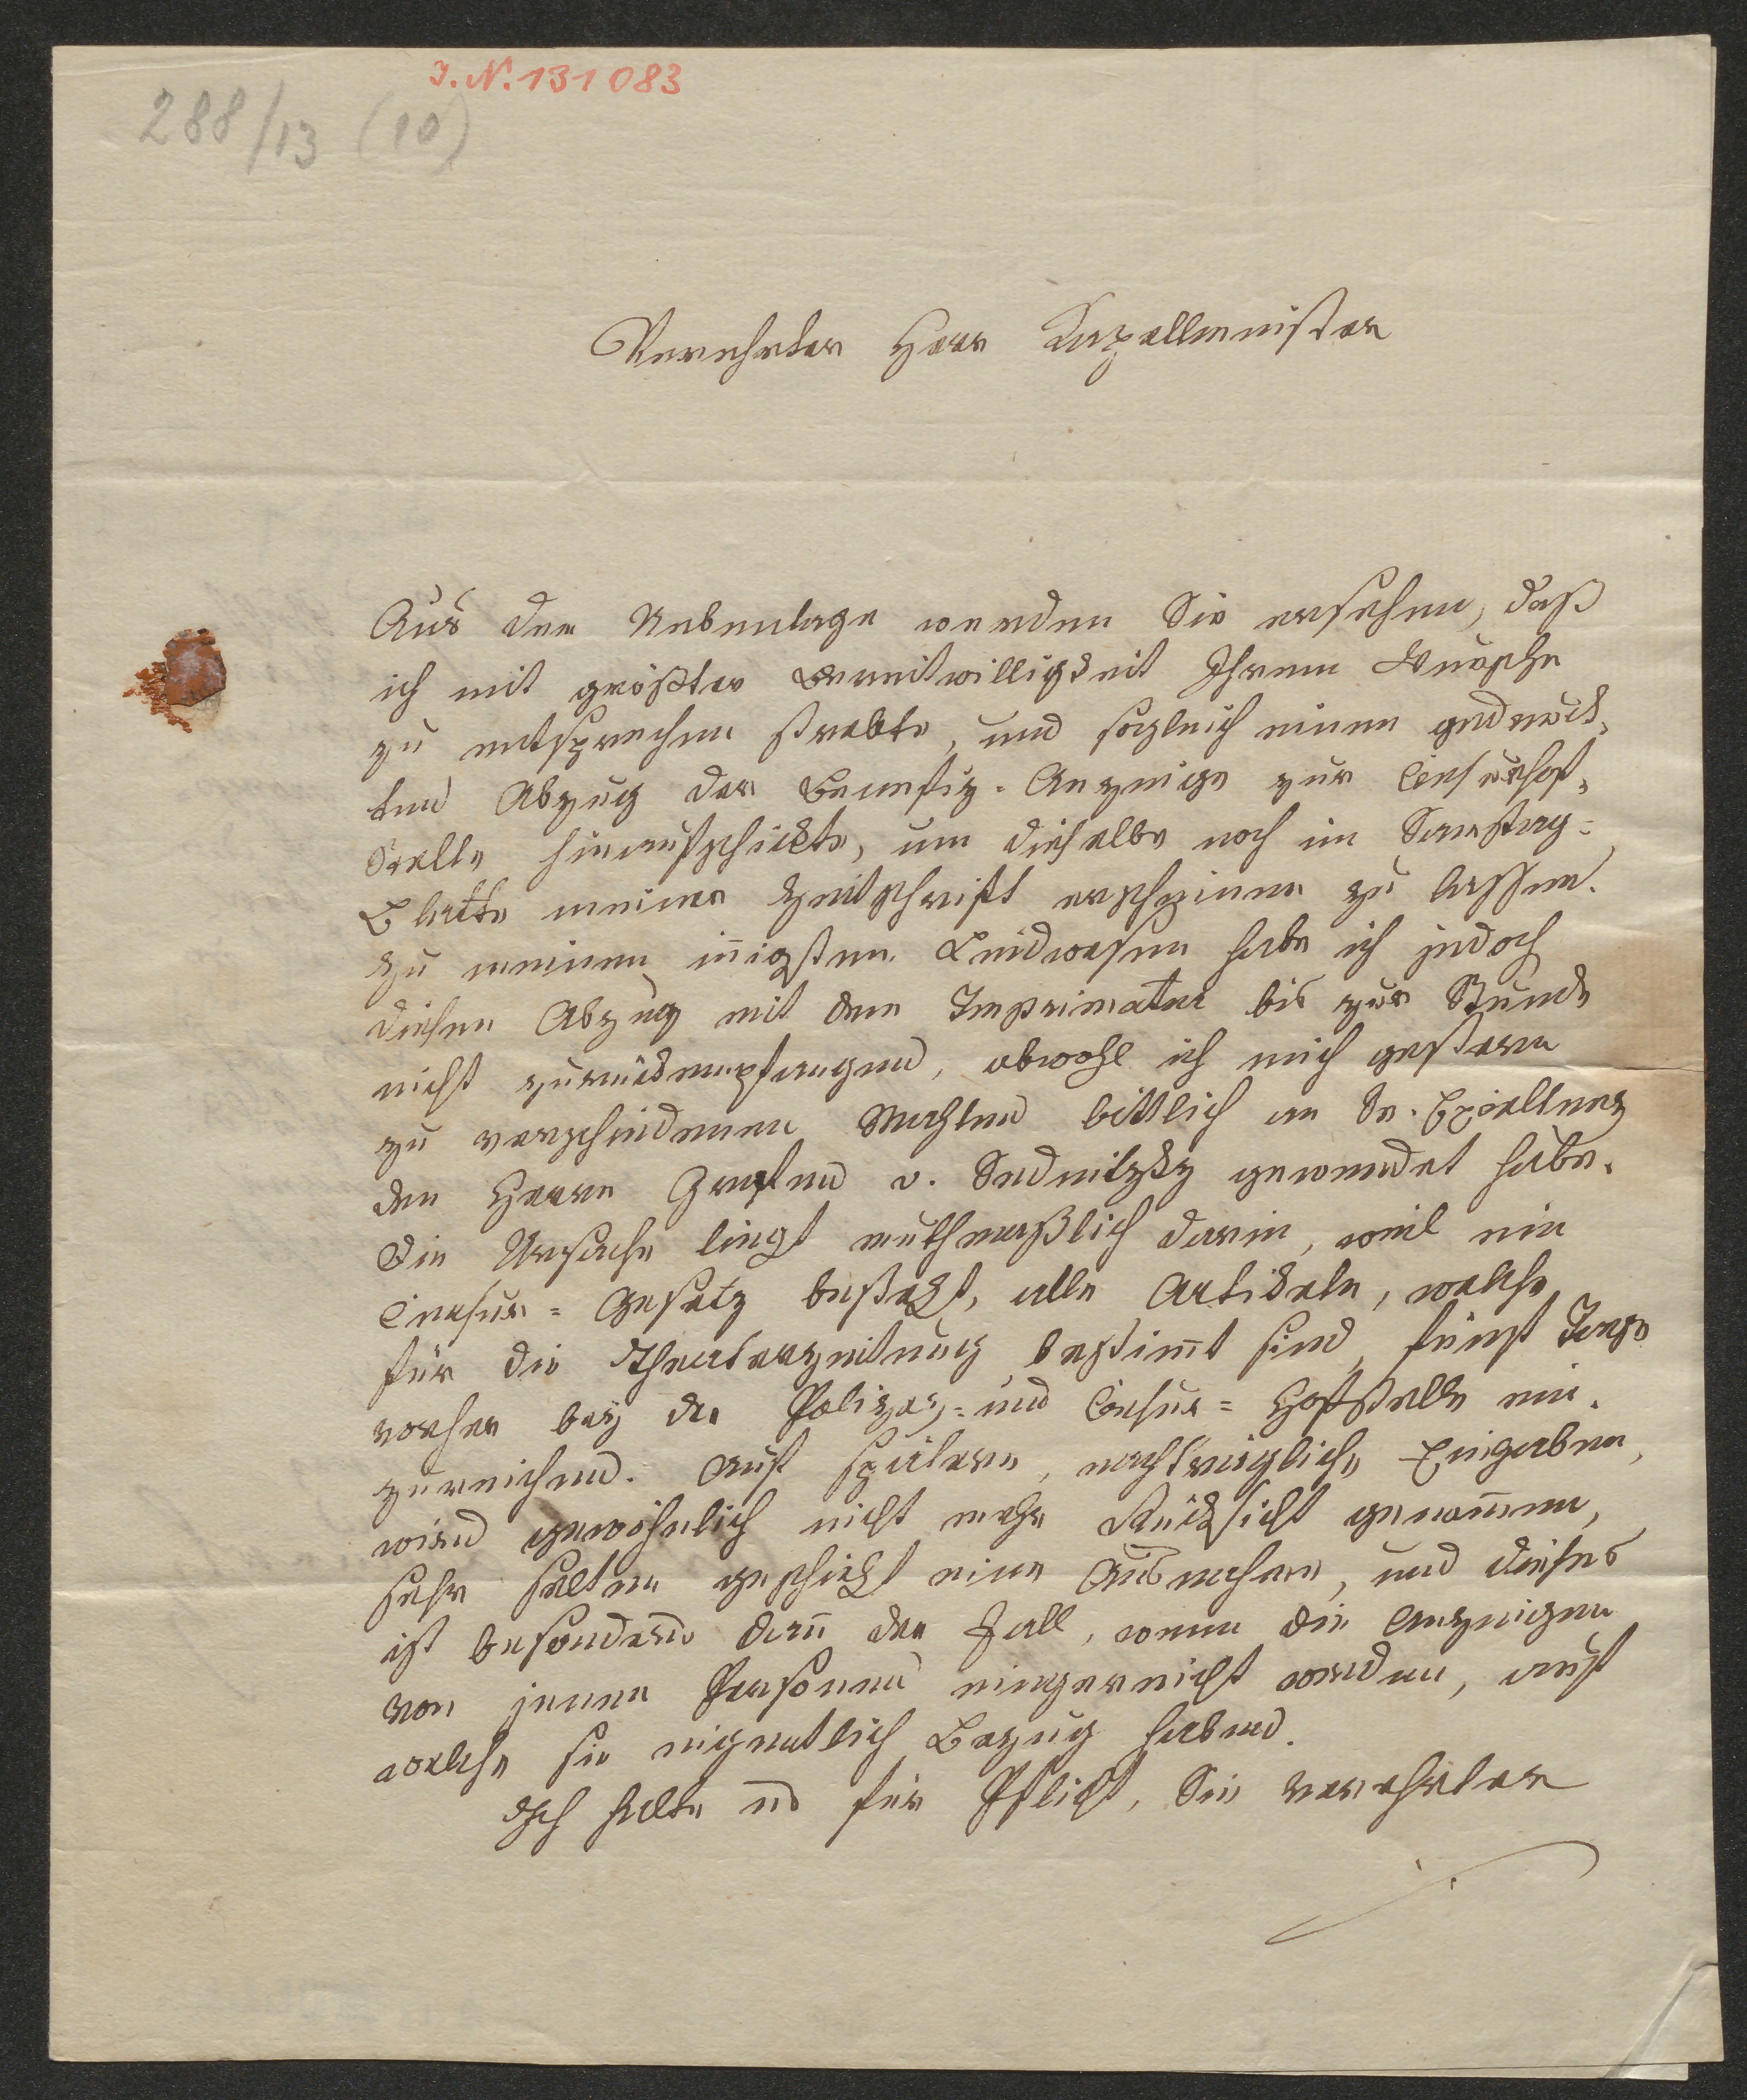 I. N. 131083
288/13 (10)
Verehrter Herr Kapellmeister
Aus der Nebenlage werden Sie ersehen, daß
ich mit größter Bereitwilligkeit Ihrem Wunsche
zu entsprechen strebte, und sogleich einen gedruck-
ten Abzug der Benefiz-Anzeige zur Censurhof-
Stelle hinaufschickte, um dieselbe noch im Samstag-
Blatte meiner Zeitschrift erscheinen zu lassen.
Zu meinem iñigsten Leidwesen habe ich jedoch
diesen Abzug mit dem Imprimatur bis zur Stunde
nicht zurückempfangen, obwohl ich mich gestern
zu verschiedenen Mahlen bittlich an Se. Excellenz
den Herrn Grafen v. Sednitzky gewendet habe.
Die Ursache liegt muthmaßlich darin, weil ein
Censur-Gesetz besteht, alle Artikeln, welche
für die Theaterzeitung bestim̃t sind, fünf Tage
vorher bey der Polizey- und Censur-Hofstelle ein-
zureichen. Auf spätere, nachträgliche Eingaben,
wird gewöhnlich nicht mehr Rücksicht genom̃en,
sehr selten geschieht eine Ausnahme, und dieses
ist besonders dañ der Fall, wenn die Anzeigen
von jenen Personen eingereicht werden, auf
welche sie eigentlich Bezug haben.
Ich halte es für Pflicht, Sie verehrter